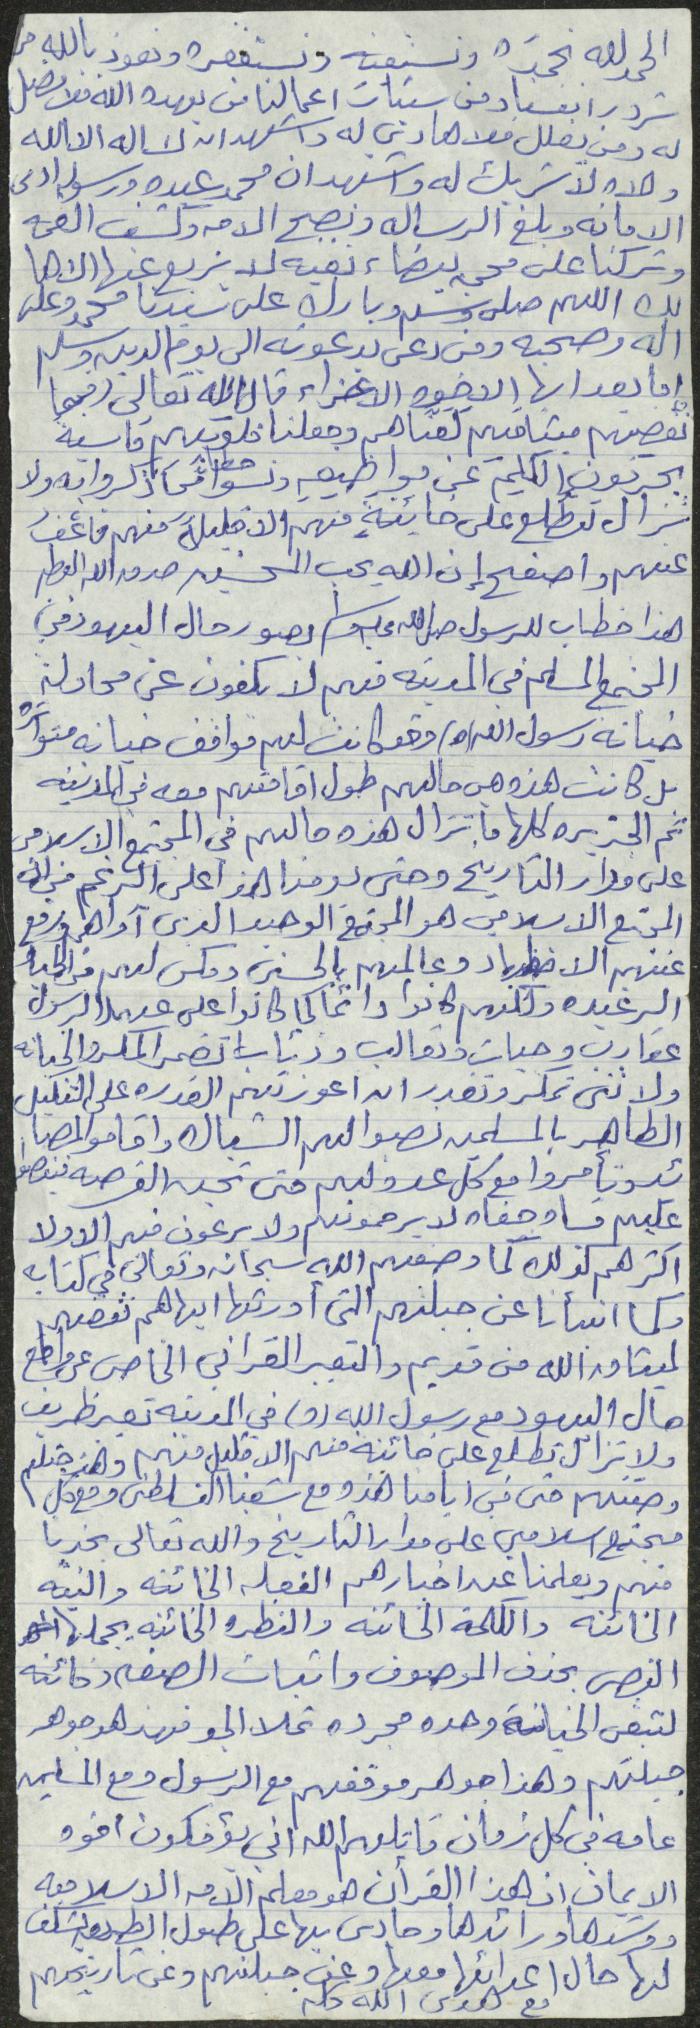 الحمد لله نحمده ونستعينه ونستغفره ونعوذ بالله من
شرور انفسنا ومن سيئات اعمالنا من يهده الله فلا مضل
له ومن يضلل فلا هادي له واشهد ان لا اله الا الله
وحده لا شريك له واشهد ان محمد عبده ورسوله ادى
الامانه وبلغ الرساله ونصح الامه وكشف الغمه
وتركنا على محجه بيضاء نقيه لا يزيغ عنها الا ها
لك اللهم صلي وسلم وبارك على سيدنا محمد وعلى
اله وصحبه ومن دعى بدعوته الى يوم الدين وسلم
اما بعد ايها الاخوه الاعزاء قال الله تعالى (فبما
نقضهم ميثاقهم لعناهم وجعلنا قلوبهم قاسية
يحرفون الكلم عن مواضعه ونسوا حظا مما ذكروا به ولا
تزال تطلع على خائنة منهم الا قليلا منهم فاعف
عنهم واصفح إن الله يحب المحسنين صدق الله العظيم
هذا خطاب للرسول صلى الله عليه وسلم يصور حال اليهود في
المجتمع المسلم في المدينه فهم لا يكفون عن محاولة
خيانة رسول الله (ص) وقد كانت لهم مواقف خيانه متواتره
بل كانت هذه هي حالهم طول اقامتهم معه في المدينه
ثم الجزيره كلها ما تزال هذه حالهم في المجتمع الاسلامي
على مدار التاريخ وحتى يومنا هذا على الرغم من ان
المجتمع الاسلامي هو المجتمع الوحيد الذي آواهم ورفع
عنهم الاضطهاد وعاملهم بالحسنى ومكن لهم من الحياة
الرغيده ولكنهم كانوا دائما كما كانوا على عهد الرسول
عقارب وحيات وثعالب وذئاب تضمر المكر والخيانه
ولا تني تمكر وتغدر ان اعوزتهم القدره على التنكيل
الظاهر بالمسلمين نصبوا لهم الشباك واقاموا المصا
ئد وتأمروا مع كل عدو لهم حتى تحين الفرصه فينقضوا
عليهم قساه جفاه لا يرحمونهم ولا يرعون فيهم الا ولا
اكثرهم كذلك كما وصفهم الله سبحانه وتعالى في كتابه
وكما انبأنا عن جبلتهم التي أورثها اياهم نقضهم
لميثاق الله من قديم والتعبير القرآني الخاص عن واقع
حال اليهود مع رسول الله (ص) في المدينه تعبير طريف
ولا تزال تطلع على خائنه منهم الا قليل منهم وهذه جبلتهم
وصفتهم حتى في ايامنا هذه مع شعبنا الفلسطيني ومع كل
مجتمع اسلامي على مدار التاريخ والله تعالى يخبرنا
منهم ويعلمنا عن اخبارهم الفعله الخائنه والنيه
الخائنه والكلمة الخائنه والنظره الخائنه يجملها
النص بحذف الموصوف واثبات الصفه (خائنه
لتبقى الخيانة وحده مجرده تملا الجو فهذا هو جوهر
جبلتهم وهذا جوهر موقفهم مع الرسول ومع المسلمين
عامه في كل زمان قاتلهم الله انى يؤفكون اخوه
الايمان ان هذا القرأن هو معلم الامه الاسلاميه
ومرشدها ورائدها وحادي بها على طول الطريق يكشف
لها حال اعدائها معها وعن جبلتهم وعن تاريخهم
مع هدى الله كله